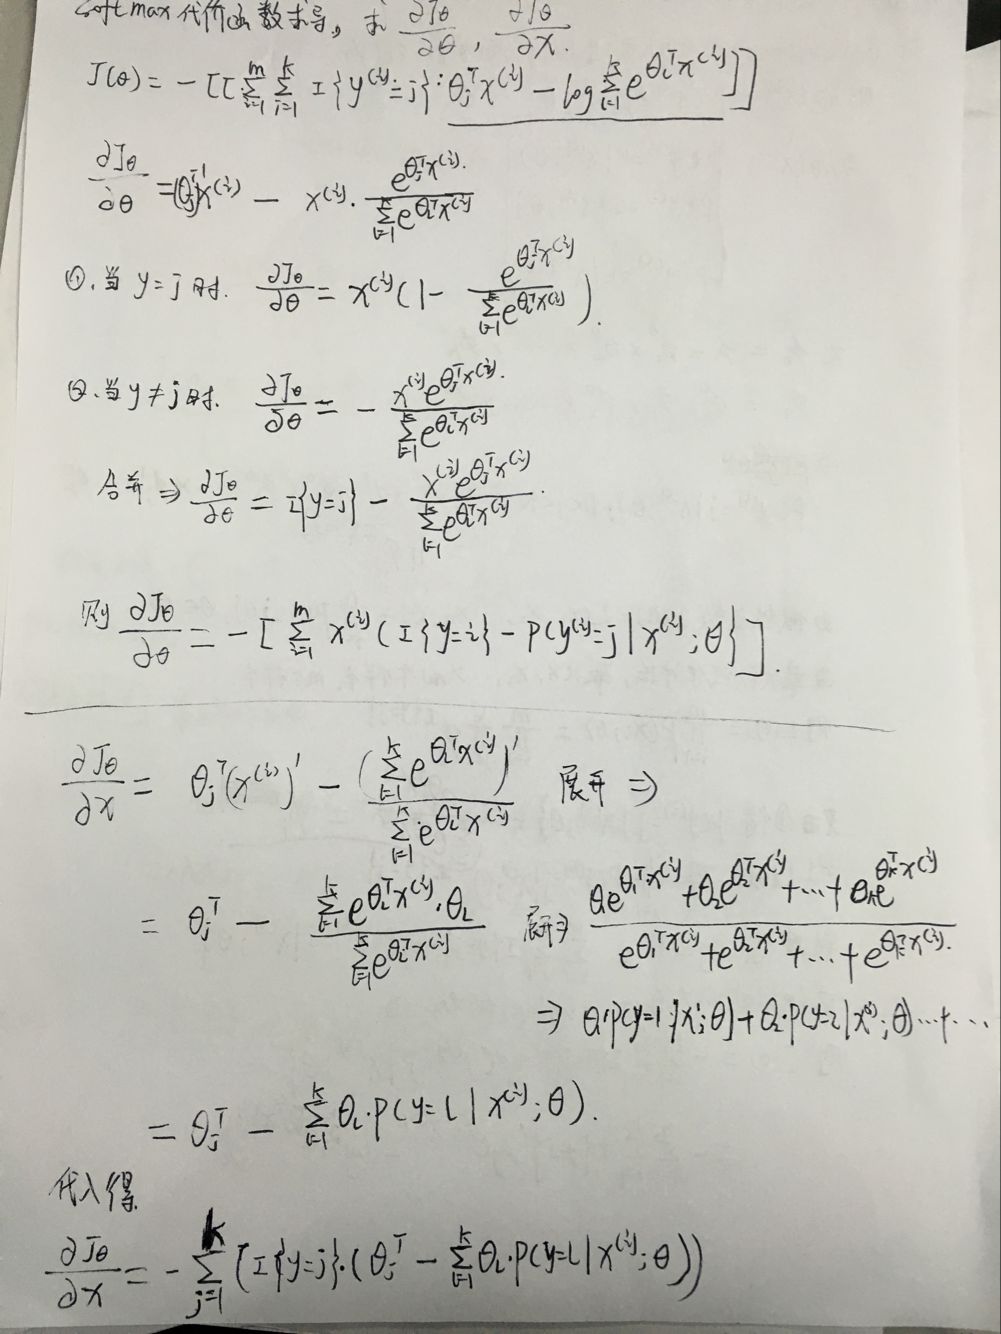 softmax代价函数求导,求 ∂Jθ/∂θ, ∂Jθ/∂x.
J(θ) = -[[∑_{i=1}^{m} ∑_{j=1}^{k} I{y^{(i)}=j}·θ_j^T x^{(i)} - log ∑_{l=1}^{k} e^{θ_l^T x^{(i)}}]]
∂Jθ/∂θ = (θ_j^T)'x^{(i)} - x^{(i)}· e^{θ_j^T x^{(i)}} / ∑_{l=1}^{k} e^{θ_l^T x^{(i)}}
①.当 y=j 时. ∂Jθ/∂θ = x^{(i)}(1 - e^{θ_j^T x^{(i)}} / ∑_{l=1}^{k} e^{θ_l^T x^{(i)}}).
②.当 y≠j 时. ∂Jθ/∂θ = - x^{(i)} e^{θ_j^T x^{(i)}} / ∑_{l=1}^{k} e^{θ_l^T x^{(i)}}
合并 ⇒ ∂Jθ/∂θ = I{y=j} - x^{(i)} e^{θ_j^T x^{(i)}} / ∑_{l=1}^{k} e^{θ_l^T x^{(i)}}.
则 ∂Jθ/∂θ = -[∑_{i=1}^{m} x^{(i)}(I{y=i} - P(y^{(i)}=j|x^{(i)};θ}].
∂Jθ/∂x = θ_j^T(x^{(i)})' - (∑_{l=1}^{k} e^{θ_l^T x^{(i)}})' / ∑_{l=1}^{k} e^{θ_l^T x^{(i)}} 展开 ⇒
= θ_j^T - ∑_{l=1}^{k} e^{θ_l^T x^{(i)}}·θ_l / ∑_{l=1}^{k} e^{θ_l^T x^{(i)}} 展开⇒ θ_1e^{θ_1^T x^{(i)}}+θ_2e^{θ_2^T x^{(i)}}+…+θ_ke^{θ_k^T x^{(i)}} / e^{θ_1^T x^{(i)}}+e^{θ_2^T x^{(i)}}+…+e^{θ_k^T x^{(i)}}.
⇒ θ_1·P(y=1|x^i;θ)+θ_2·P(y=2|x^{(i)};θ)…+…
= θ_j^T - ∑_{l=1}^{k} θ_l·P(y=l|x^{(i)};θ).
代入得
∂Jθ/∂x = -∑_{j=1}^{k} [I{y=j}·(θ_j^T - ∑_{l=1}^{k} θ_l·P(y=l|x^{(i)};θ))